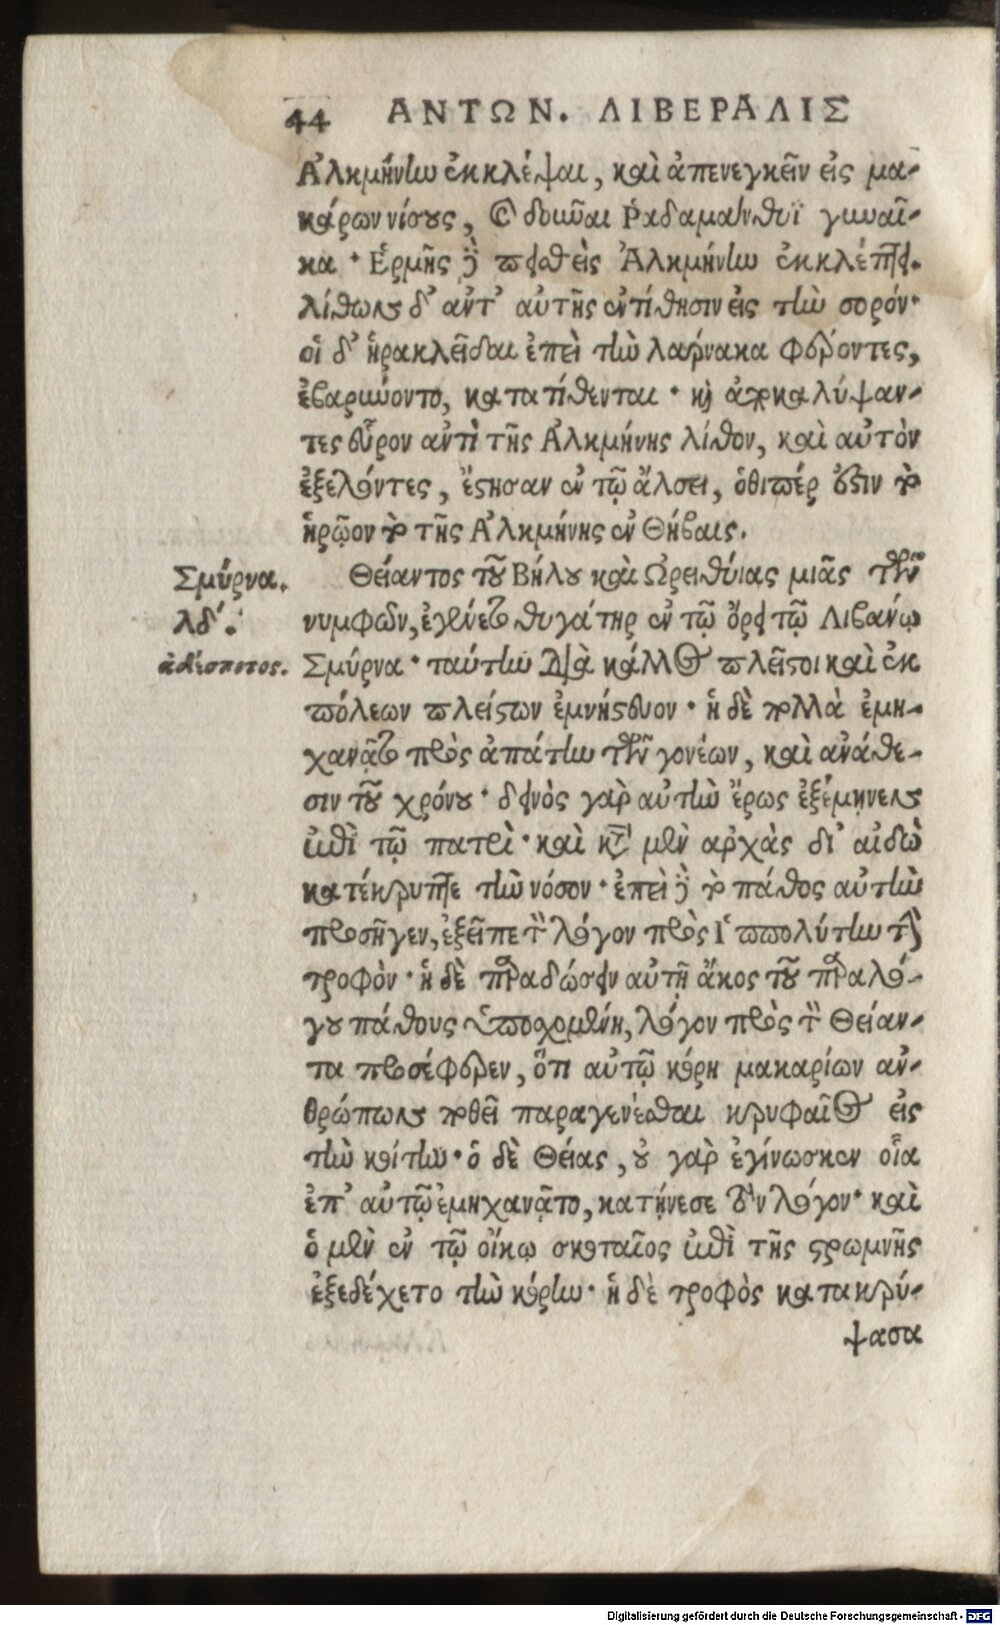 44 ΑΝΤΩΝ. ΛΙΒΕΡΑΛΙΣ
Ἀλκμήνην ἐκκλέψαι, καὶ ἀπενεγκεῖν εἰς μα-
κάρων νήσους, καὶ δοῦναι Ῥαδαμάνθυϊ γυναῖ-
κα· Ἑρμῆς δὲ πεισθεὶς Ἀλκμήνην ἐκκλέπτει.
λίθον δ' ἀντ' αὐτῆς ἐντίθησιν εἰς τὴν σορόν·
οἱ δ' ἡρακλεῖδαι ἐπεὶ τὴν λάρνακα φέροντες,
ἐβαρύνοντο, κατατίθενται· καὶ ἀποκαλύψαν-
τες εὗρον ἀντὶ τῆς Ἀλκμήνης λίθον, καὶ αὐτὸν
ἐξελόντες, ἔστησαν ἐν τῷ ἄλσει, ὅθιπέρ ἐστιν τὸ
ἡρῷον τὸ τῆς Ἀλκμήνης ἐν Θήβαις.
Σμύρνα.
λδʹ.
ἀδέσποτος.
Θείαντος τοῦ Βήλου καὶ Ὠρειθυίας μιᾶς τῶν
νυμφῶν, ἐγένετο θυγάτηρ ἐν τῷ ὄρει τῷ Λιβάνῳ
Σμύρνα· ταύτην διὰ κάλλος πλεῖστοι καὶ ἐκ
πόλεων πλείστων ἐμνήστευον· ἡ δὲ πολλὰ ἐμη-
χανᾶτο πρὸς ἀπάτην τῶν γονέων, καὶ ἀνάθε-
σιν τοῦ χρόνου· δεινὸς γὰρ αὐτὴν ἔρως ἐξέμηνεν
ἐπὶ τῷ πατρί· καὶ κατ' μὲν ἀρχὰς δι' αἰδῶ
κατέκρυπτε τὴν νόσον· ἐπεὶ δὲ τὸ πάθος αὐτὴν
προσῆγεν, ἐξεῖπε τὸν λόγον πρὸς Ἱππολύτην τὴν
τροφὸν· ἡ δὲ παραδώσειν αὐτῇ ἄκος τοῦ παραλό-
γου πάθους ὑποσχομένη, λόγον πρὸς τὸν Θείαν-
τα προσέφερεν, ὅτι αὐτῷ κόρη μακαρίων ἀν-
θρώπων ποθεῖ παραγενέσθαι κρυφαῖος εἰς
τὴν κοίτην· ὁ δὲ Θείας, οὐ γὰρ ἐγίνωσκεν οἷα
ἐπ' αὐτῷ ἐμηχανᾶτο, κατῄνεσε τὸν λόγον· καὶ
ὁ μὲν ἐν τῷ οἴκῳ σκοταῖος ἐπὶ τῆς στρωμνῆς
ἐξεδέχετο τὴν κόρην· ἡ δὲ τροφὸς κατακρύ-
ψασα
Digitalisierung gefördert durch die Deutsche Forschungsgemeinschaft - DFG